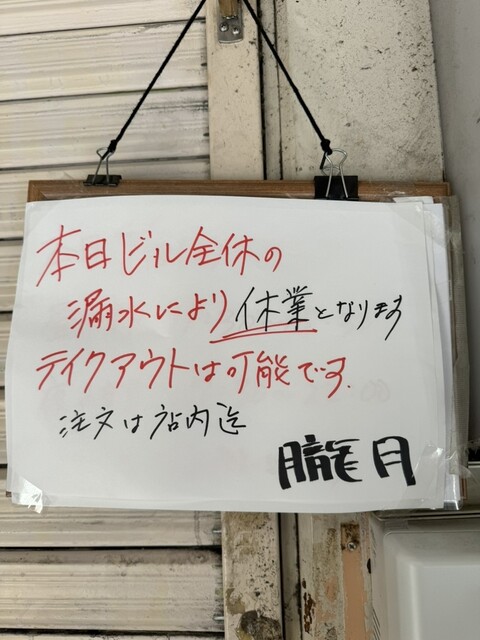 本日ビル全体の
漏水により休業となります
テイクアウトは可能です.
注文は店内迄
朧月